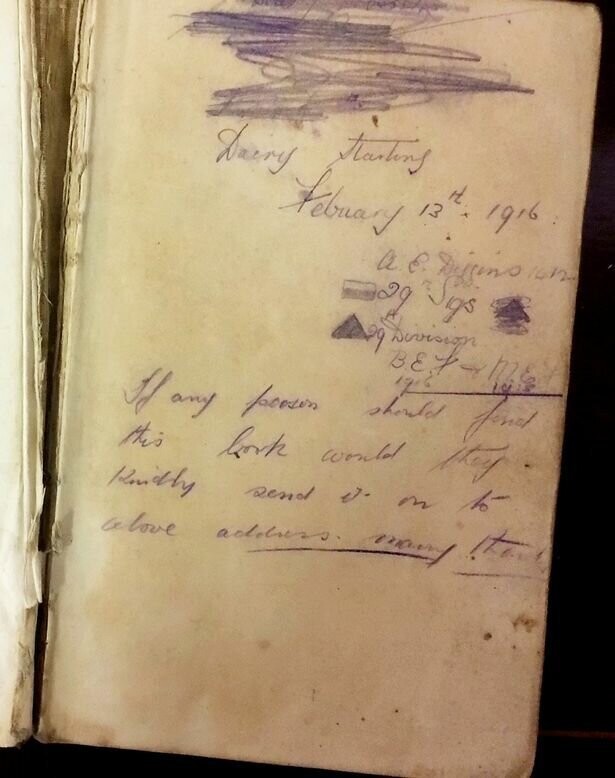 Dairy Starting
Febuary 13th. 1916.
A. E.
29th Sigs
29th Division
B.E.F
1916
If any person should find
this book would they
Kindly send it on to
above address. many thanks